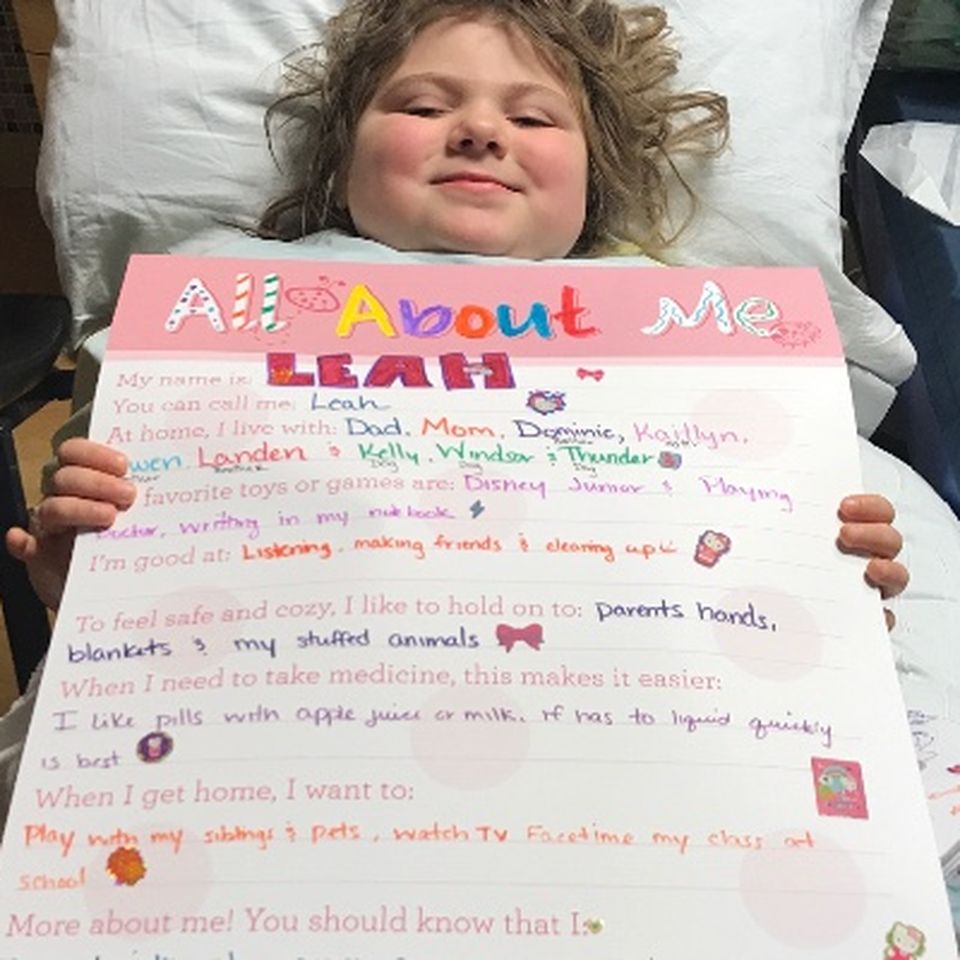 All About Me
My name is: LEAH
You can call me: Leah
At home, I live with: Dad, Mom, Dominic, Kaitlyn,
wen, Landen & Kelly, Windsor & Thunder
Brother Dog Dog Dog
favorite toys or games are: Disney Junior & Playing
Doctor, writing in my notebook
I'm good at: Listening, making friends & cleaning up
To feel safe and cozy, I like to hold on to: parents hands,
blankets & my stuffed animals
When I need to take medicine, this makes it easier:
I like pills with apple juice or milk. If has to liquid quickly
is best
When I get home, I want to:
Play with my siblings & pets, watch TV Facetime my class at
school
More about me! You should know that I: